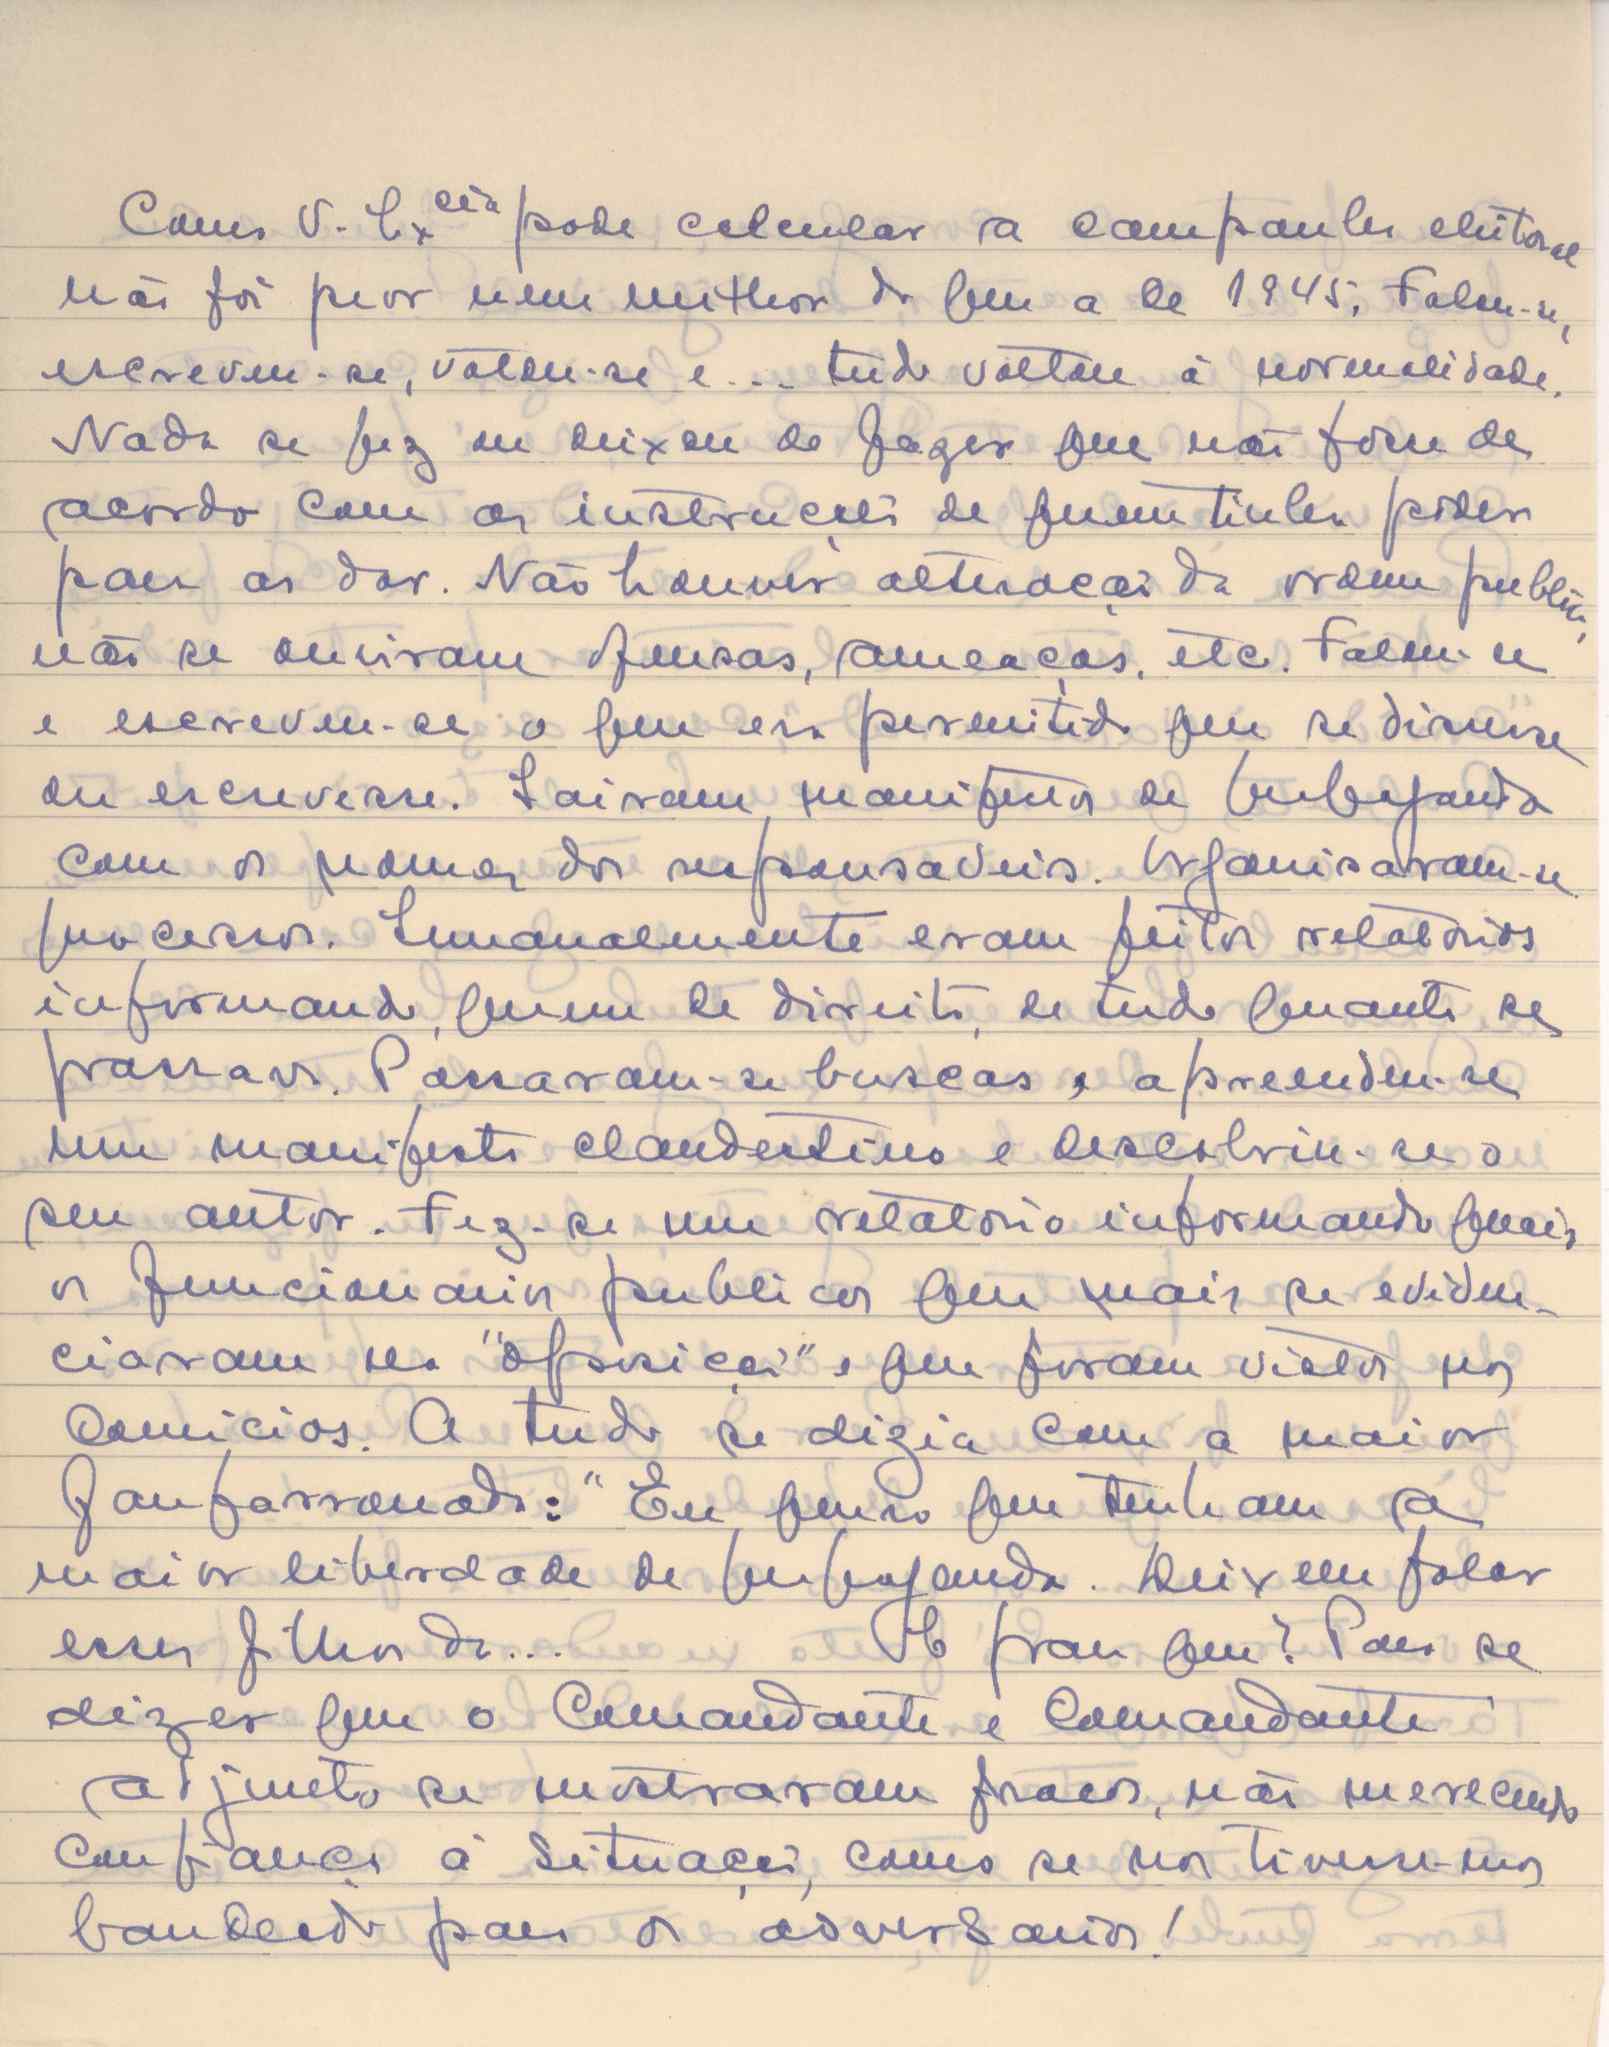 Como V. Excia pode calcular a campanha eleitoral
não foi pior nem milhor do que a de 1945. Falou-se,
escreveu-se, votou-se e... tudo voltou á normalidade.
Nada se fez ou deixou de fazer que não fosse de
acordo com as instruções de quem tinha poder
para as dar. Não houve alteração da ordem publica,
não se ouviram ofensas, ameaças, etc. Falou-se
e escreveu-se o que era permitido que se dissesse
ou escrevesse. Sairam manifestos de propaganda
com os nomes dos responsaveis. Organisaram-se
processos. Semanalmente eram feitos relatorios
informando, quem de direito, de tudo quanto se
passava. Passaram-se buscas e apreendeu-se
um manifesto clandestino e descobriu-se o
seu autor. Fez-se um relatorio informando quais
os funcionarios publicos que mais se eviden-
ciaram na "oposição" e que foram vistos nos
comicios. A tudo se dizia com a maior
fanfarronada: "Eu quero que tenham a
maior liberdade de propaganda. Deixem falar
esses filhos da... E para quê? Para se
dizer que o Comandante e Comandante
adjunto se mostraram fracos, não merecendo
confiança á Situação, como se nos tivesse-mos
bandeado para os adversarios!